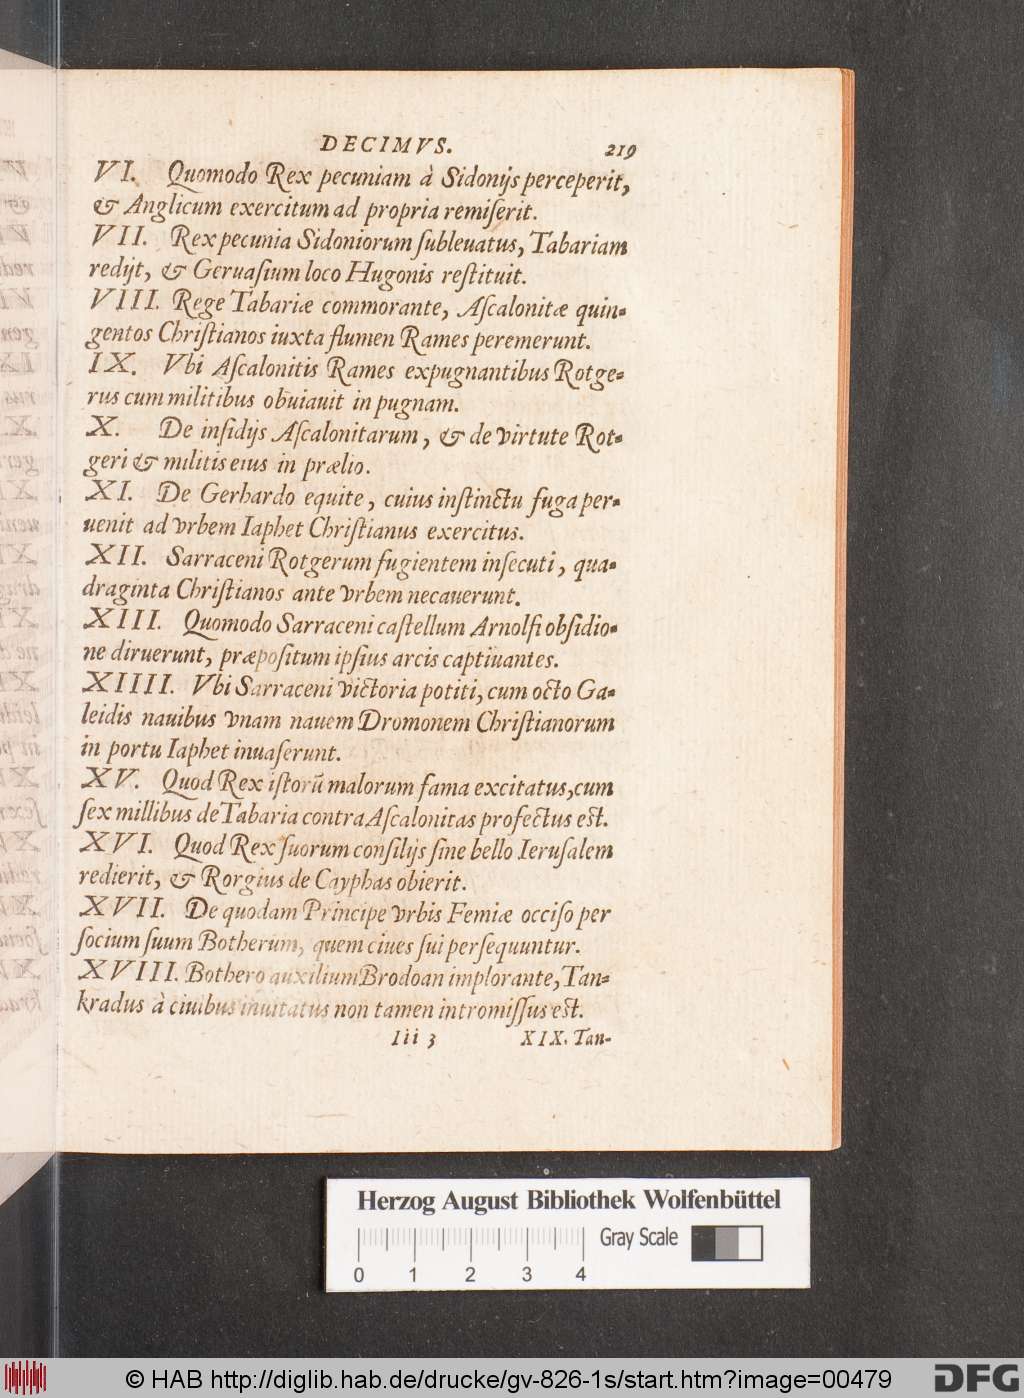 DECIMVS. 219
VI. Quomodo Rex pecuniam à Sidonijs perceperit,
& Anglicum exercitum ad propria remiſerit.
VII. Rex pecunia Sidoniorum ſubleuatus, Tabariam
redijt, & Geruaſium loco Hugonis reſtituit.
VIII. Rege Tabariæ commorante, Aſcalonitæ quin-
gentos Chriſtianos iuxta flumen Rames peremerunt.
IX. Vbi Aſcalonitis Rames expugnantibus Rotge-
rus cum militibus obuiauit in pugnam.
X. De inſidijs Aſcalonitarum, & de virtute Rot-
geri & militis eius in prælio.
XI. De Gerhardo equite, cuius inſtinctu fuga per-
uenit ad vrbem Iaphet Chriſtianus exercitus.
XII. Sarraceni Rotgerum fugientem inſecuti, qua-
draginta Chriſtianos ante vrbem necauerunt.
XIII. Quomodo Sarraceni caſtellum Arnolfi obſidio-
ne diruerunt, præpoſitum ipſius arcis captiuantes.
XIIII. Vbi Sarraceni victoria potiti, cum octo Ga-
leidis nauibus vnam nauem Dromonem Chriſtianorum
in portu Iaphet inuaſerunt.
XV. Quod Rex iſtorū malorum fama excitatus, cum
ſex millibus de Tabaria contra Aſcalonitas profectus eſt.
XVI. Quod Rex ſuorum conſilijs ſine bello Ieruſalem
redierit, & Rorgius de Cayphas obierit.
XVII. De quodam Principe vrbis Femiæ occiſo per
ſocium ſuum Botherum, quem ciues ſui perſequuntur.
XVIII. Bothero auxilium Brodoan implorante, Tan-
kradus à ciuibus inuitatus non tamen intromiſſus eſt.
Iii 3 XIX. Tan-
Herzog August Bibliothek Wolfenbüttel
Gray Scale
0 1 2 3 4
© HAB http://diglib.hab.de/drucke/gv-826-1s/start.htm?image=00479
DFG